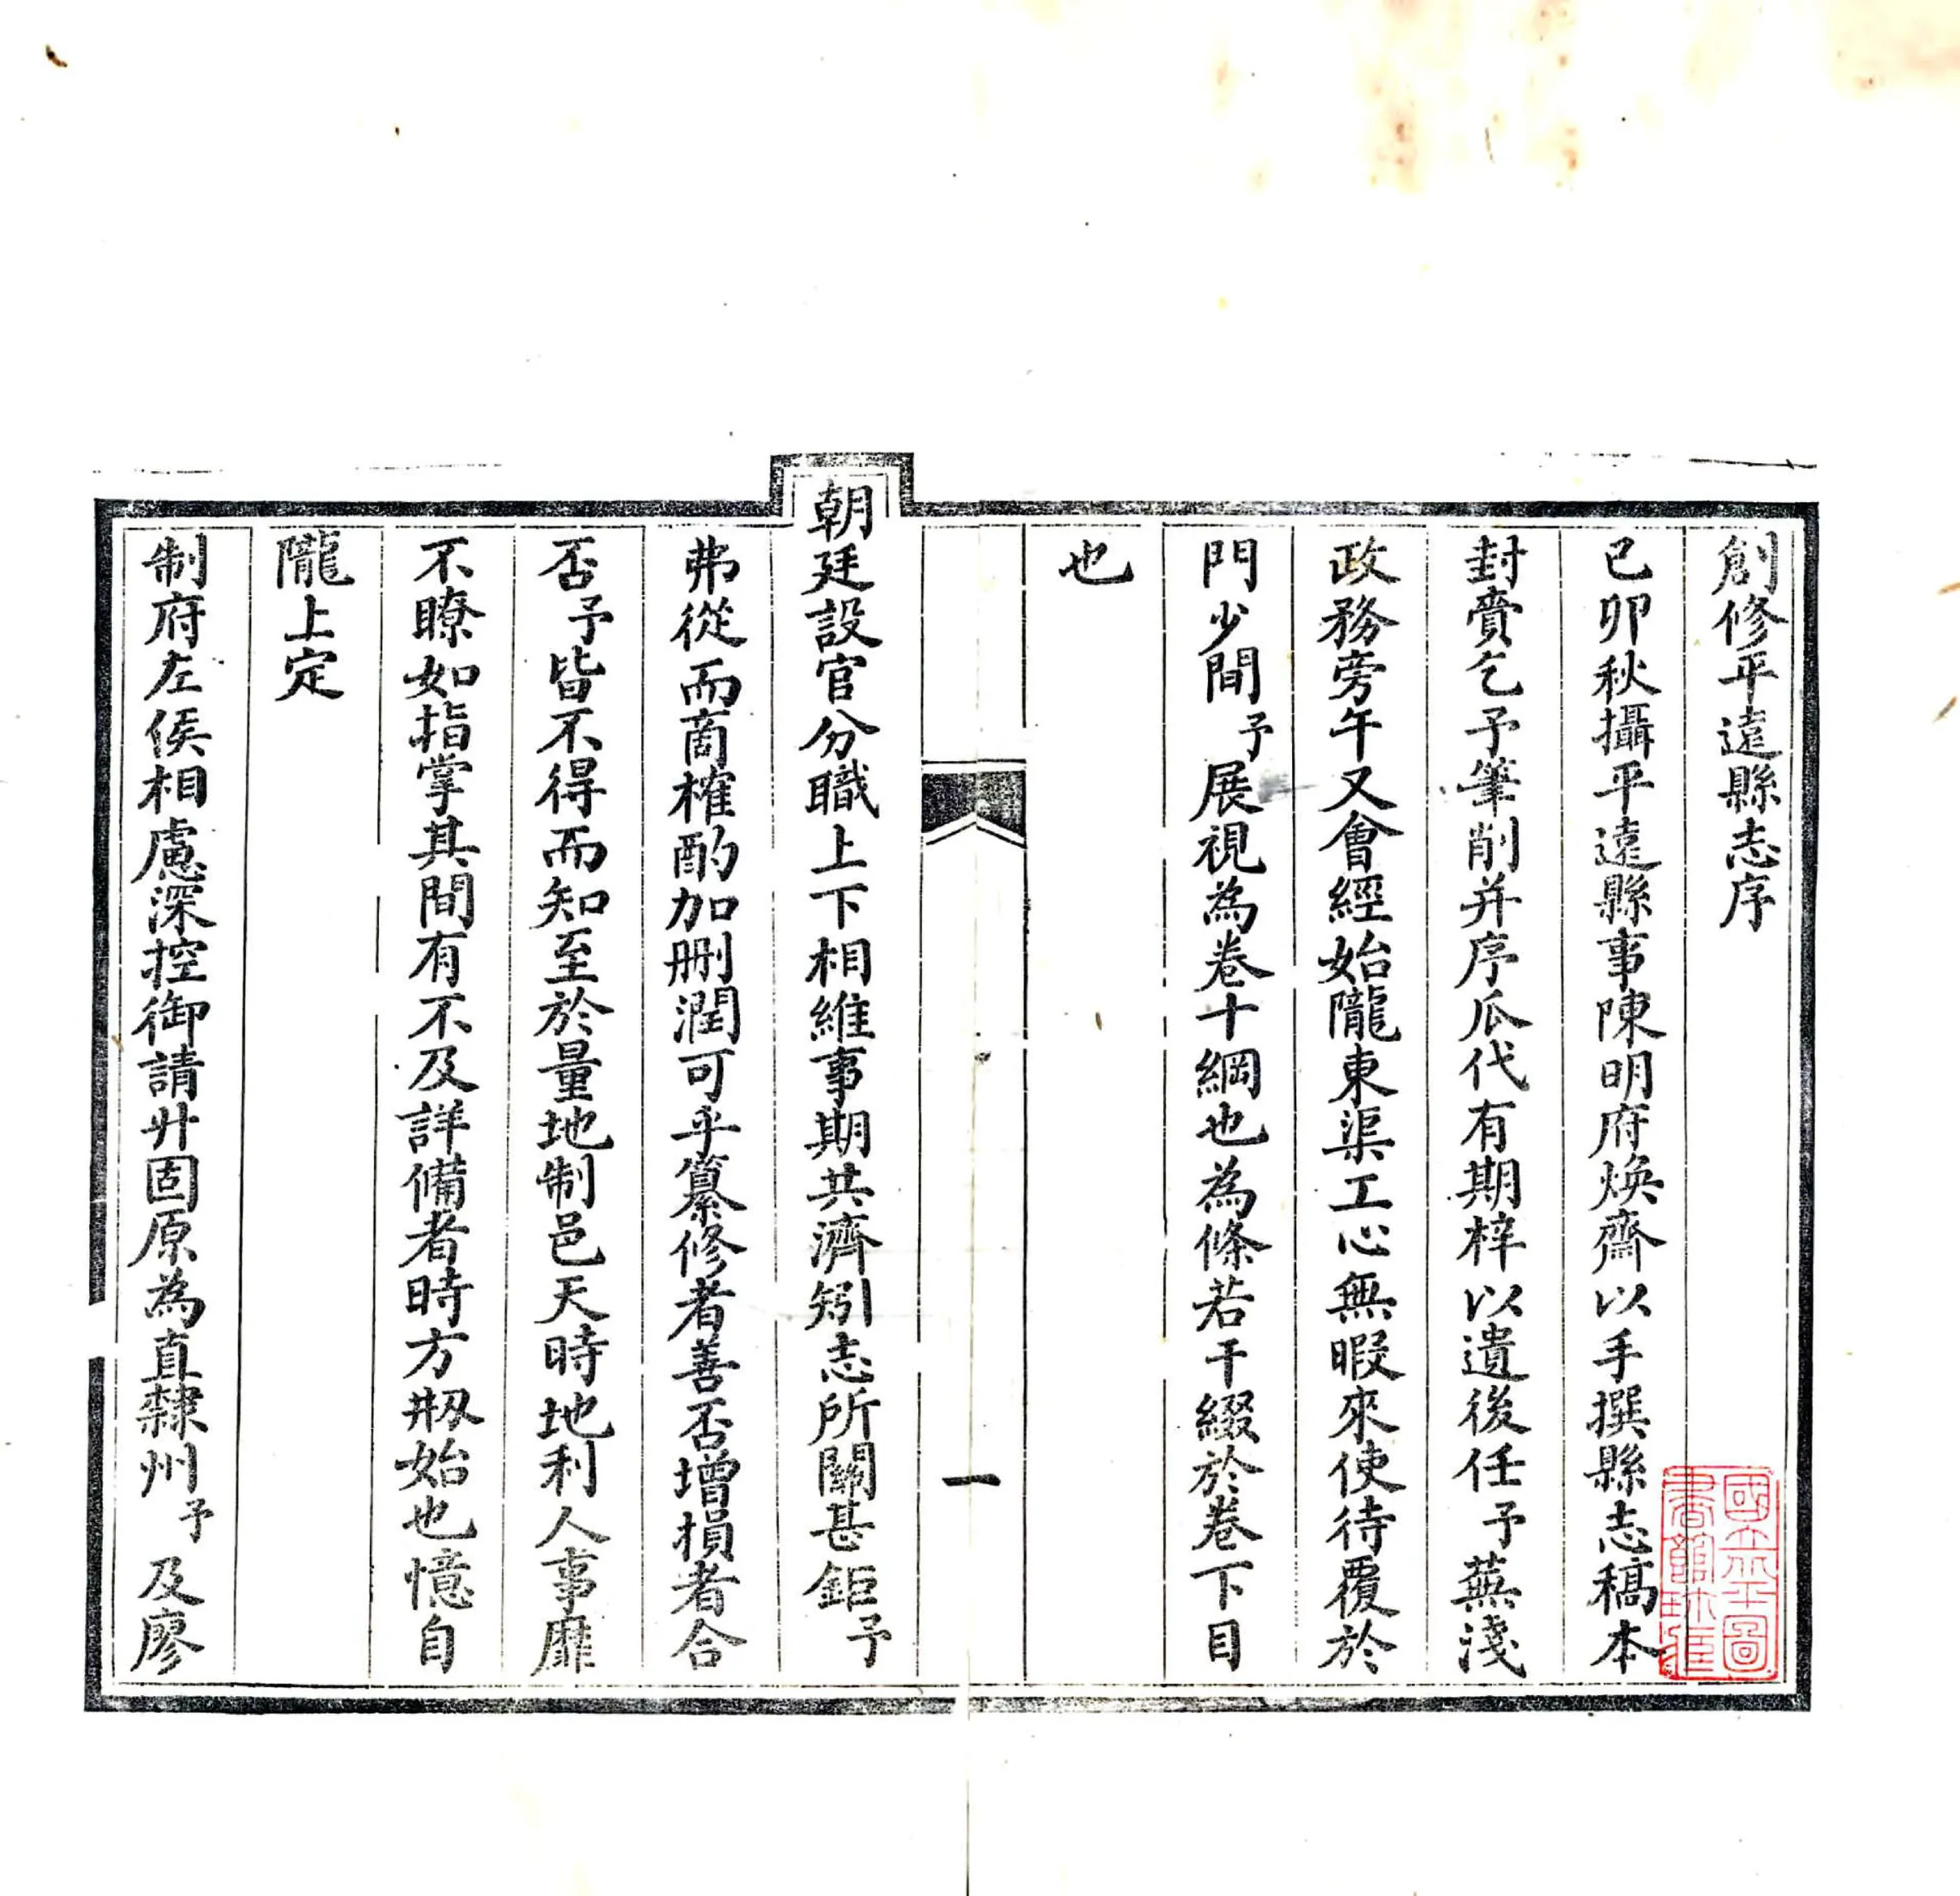 創修平遠縣志序
己卯秋攝平遠縣事陳明府煥齋以手撰縣志稿本
封賫乞予筆削并序瓜代有期梓以遺後任予蕪淺
政務旁午又會經始隴東渠工心無暇來使待覆於
門少間予展視為卷十綱也為條若干綴於卷下目
也
一
朝廷設官分職上下相維事期共濟矧志所關甚鉅予
弗從而商榷酌加刪潤可乎纂修者善否增損者合
否予皆不得而知至於量地制邑天時地利人事靡
不瞭如指掌其間有不及詳備者時方剏始也憶自
隴上定
制府左侯相慮深控御請升固原為直隸州予及廖
國立北平圖書館珍藏